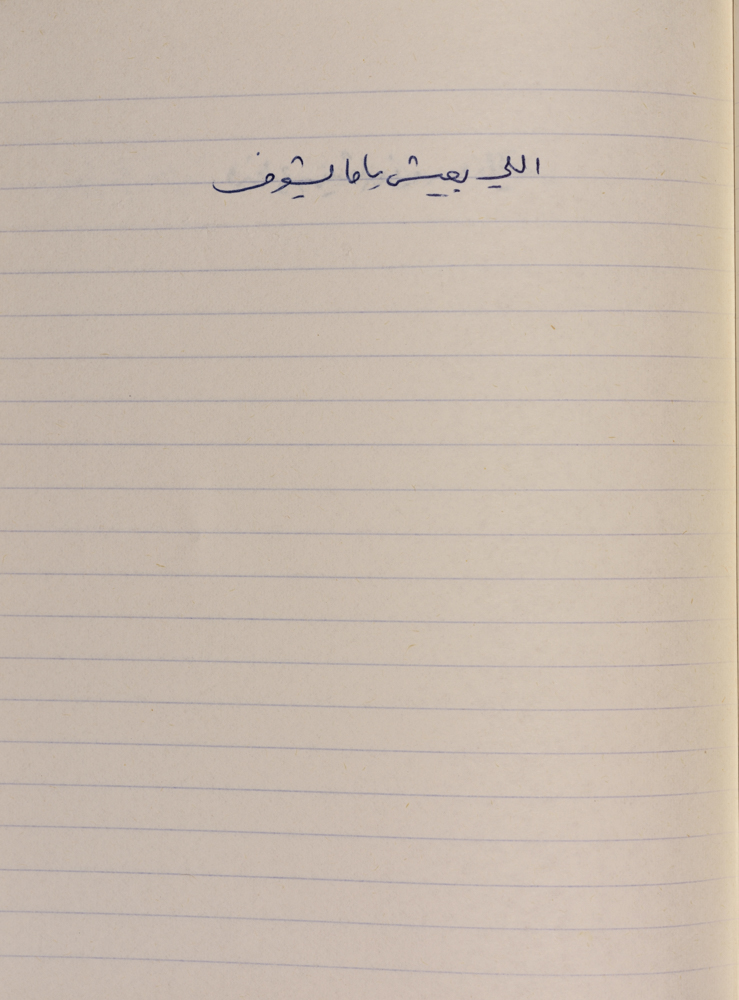 اللي يعيش ياما يشوف